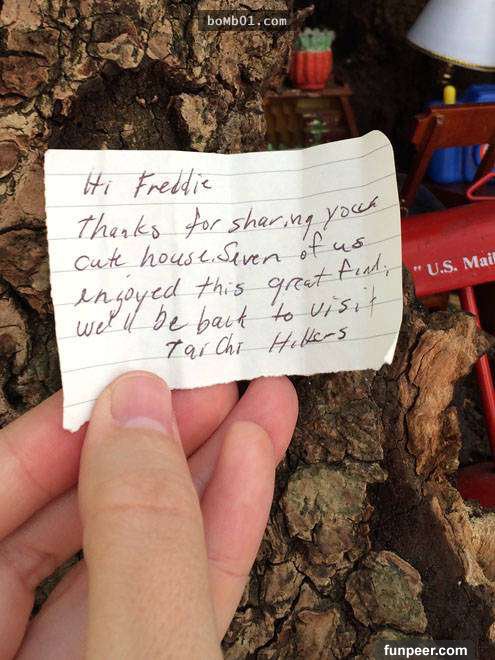 boMb01.com
Hi Freddie
Thanks for sharing your
cute house. Seven of us
enjoyed this great find.
we'll be back to visit
Tai Chi Hikers
" U.S. Mai
funpeer.com